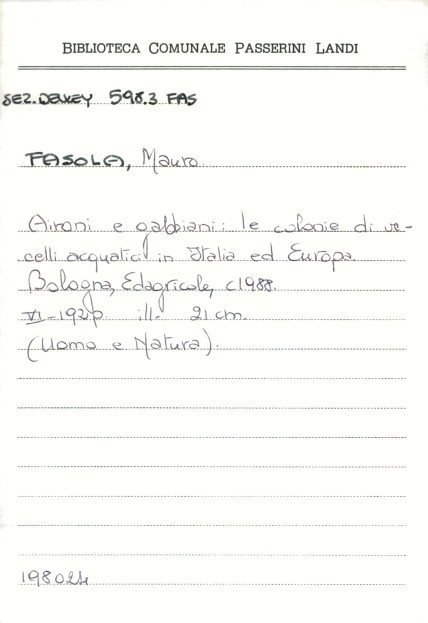 BIBLIOTECA COMUNALE PASSERINI LANDI
SEZ. DEWEY 598.3 FAS
FASOLA, Mauro
Aironi e gabbiani: le colonie di uc-
celli acquatici in Italia ed Europa.
Bologna, Edagricole, c1988.
VI-192p. ill. 21 cm.
(Uomo e Natura).
198024